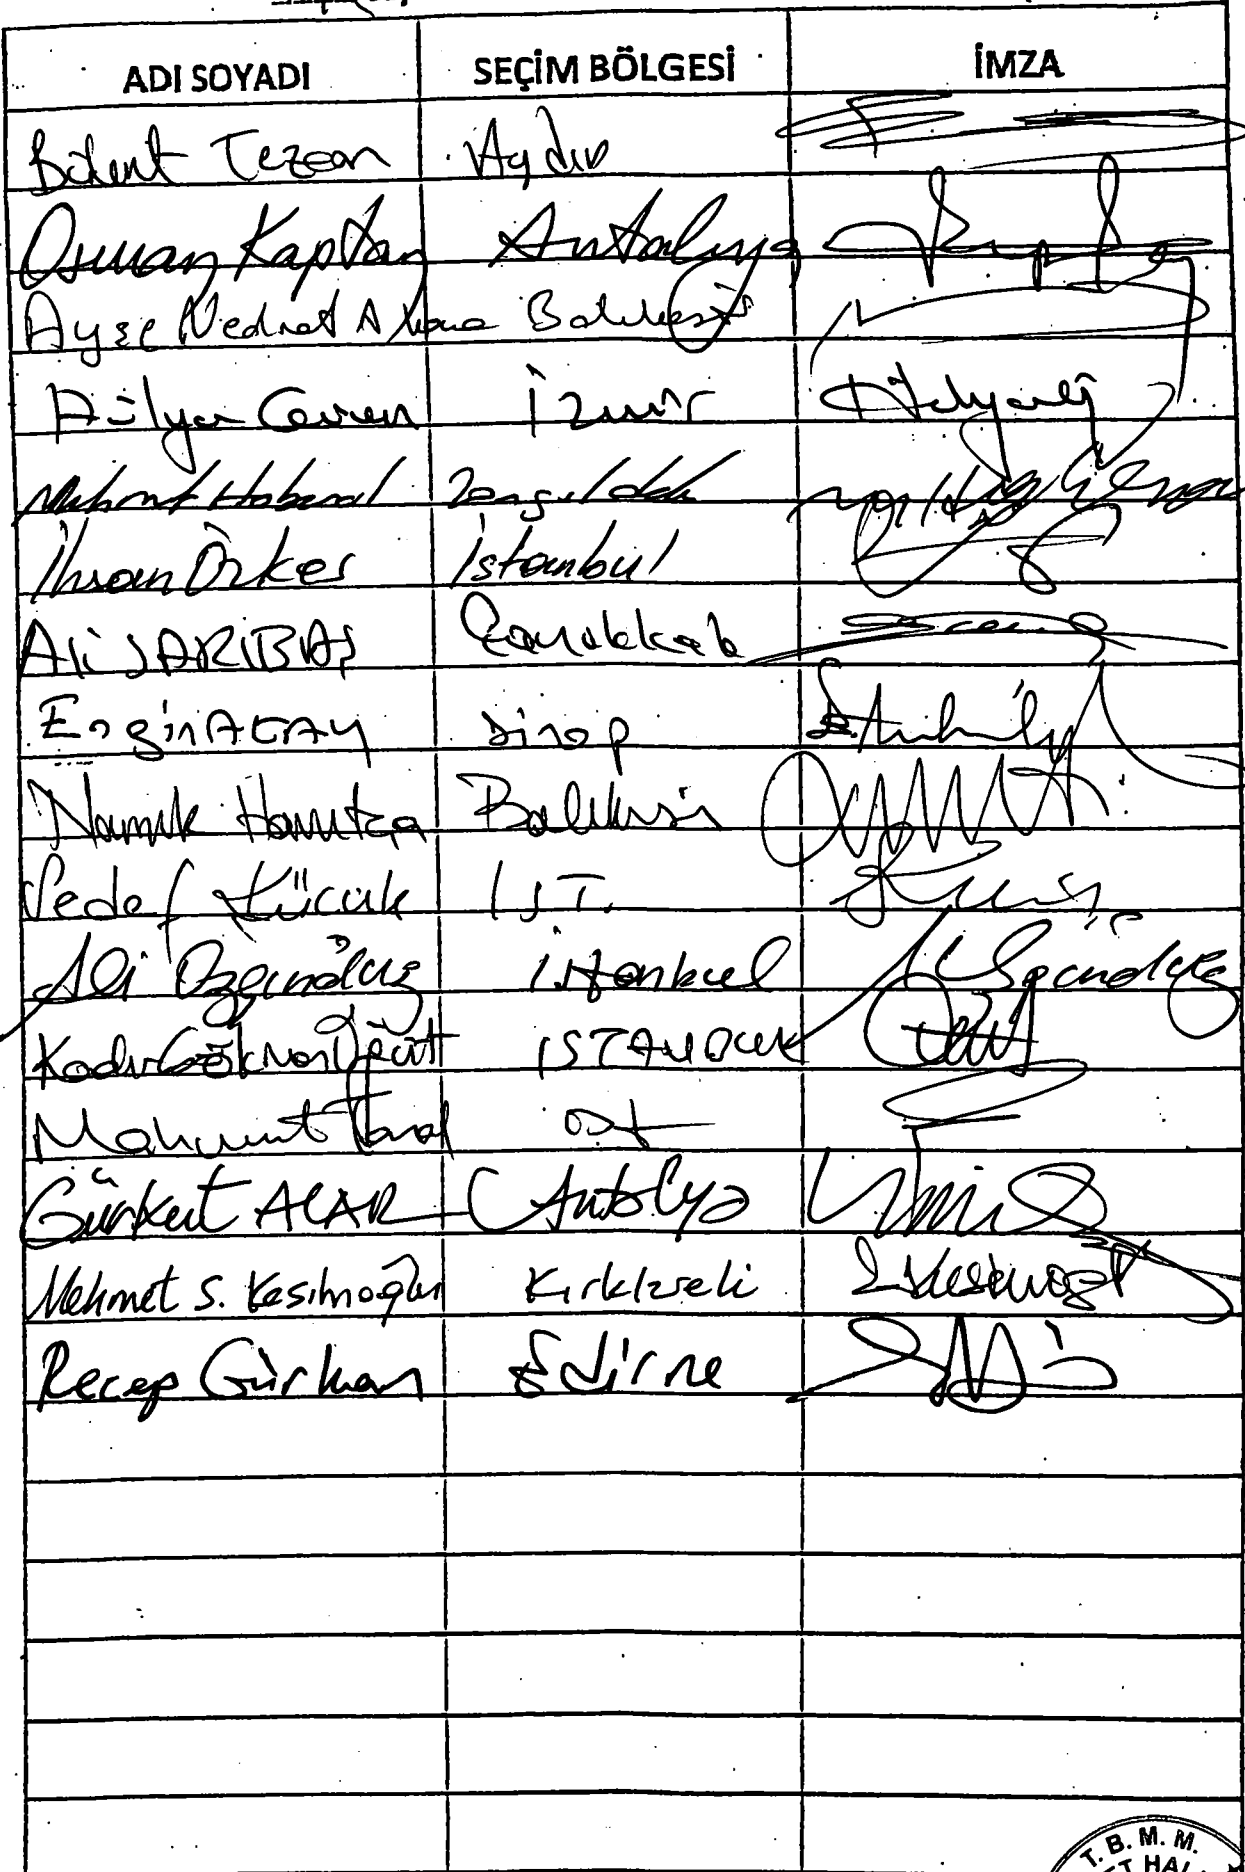 ADI SOYADI SEÇİM BÖLGESİ İMZA
Bülent Tezcan Aydın
Osman Kaptan Antalya
Ayşe Nedret Akova Balıkesir
Hülya Güven İzmir
Mehmet Haberal Zonguldak
İhsan Özkes İstanbul
Ali SARIBAŞ Çanakkale
Engin ALTAY Sinop
Namık Havutça Balıkesir
Sedef Küçük İST.
Ali Özgündüz İstanbul
Kadir Gökmen Öğüt İSTANBUL
Mahmut Tanal İst
Gürkut ACAR Antalya
Mehmet S. Kesimoğlu Kırklareli
Recep Gürkan Edirne
T. B. M. M.